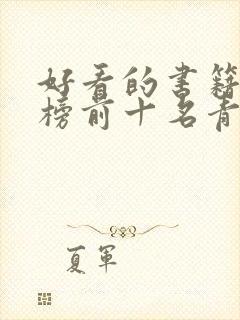 好看的书籍
榜前十名青
夏军